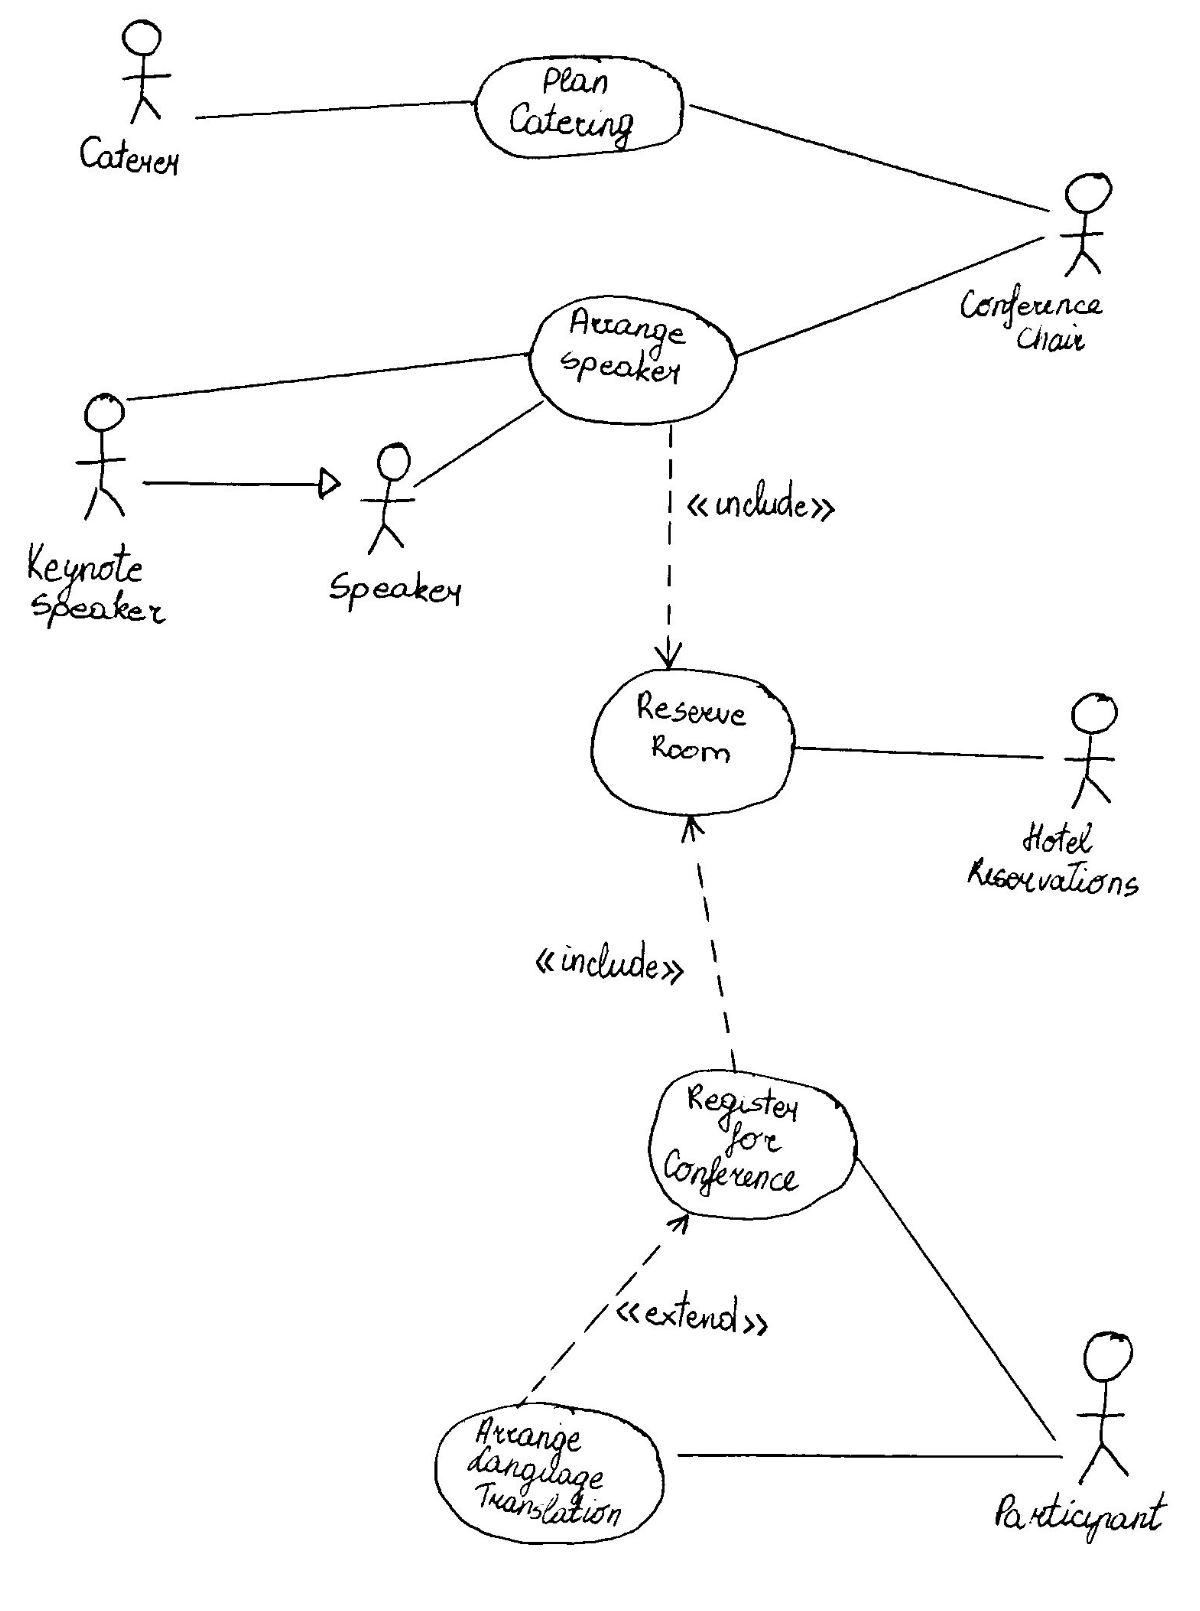 Plan
Catering
Caterer
Conference
Chair
Arrange
Speaker
Keynote
Speaker
Speaker
<<include>>
Reserve
Room
Hotel
Reservations
<<include>>
Register
for
Conference
<<extend>>
Arrange
Language
Translation
Participant